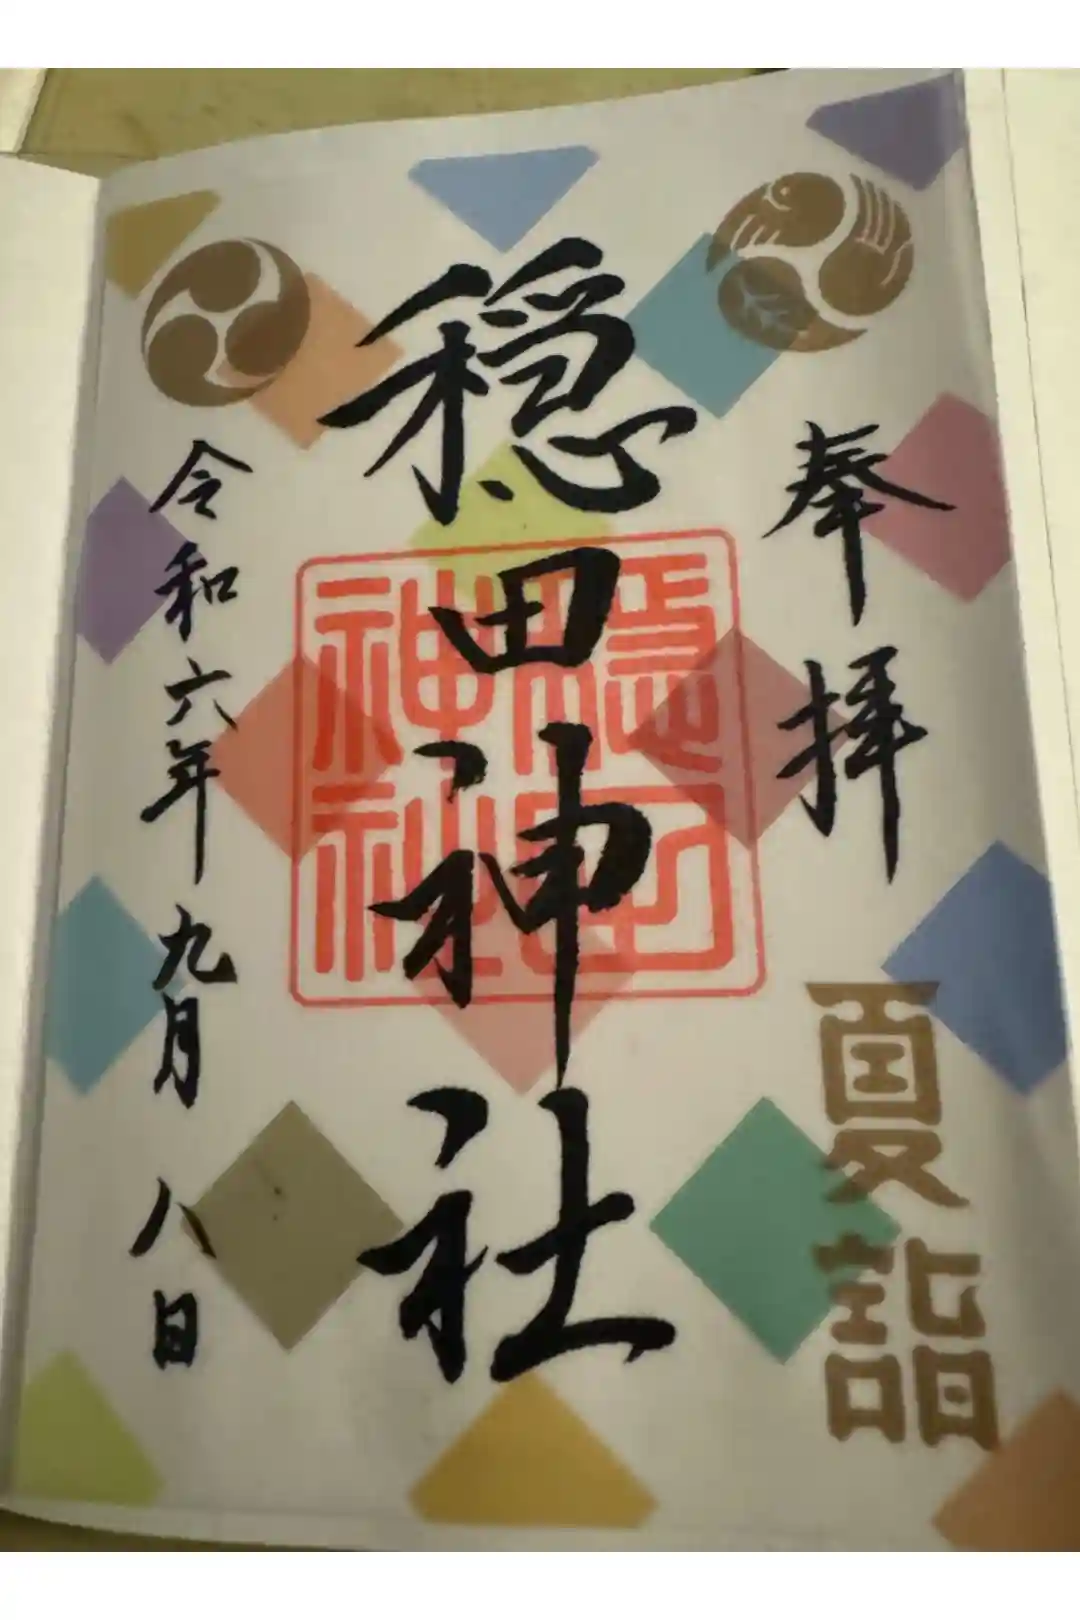 奉拝
夏詣
穏田神社
穏田
神社
令和六年九月八日